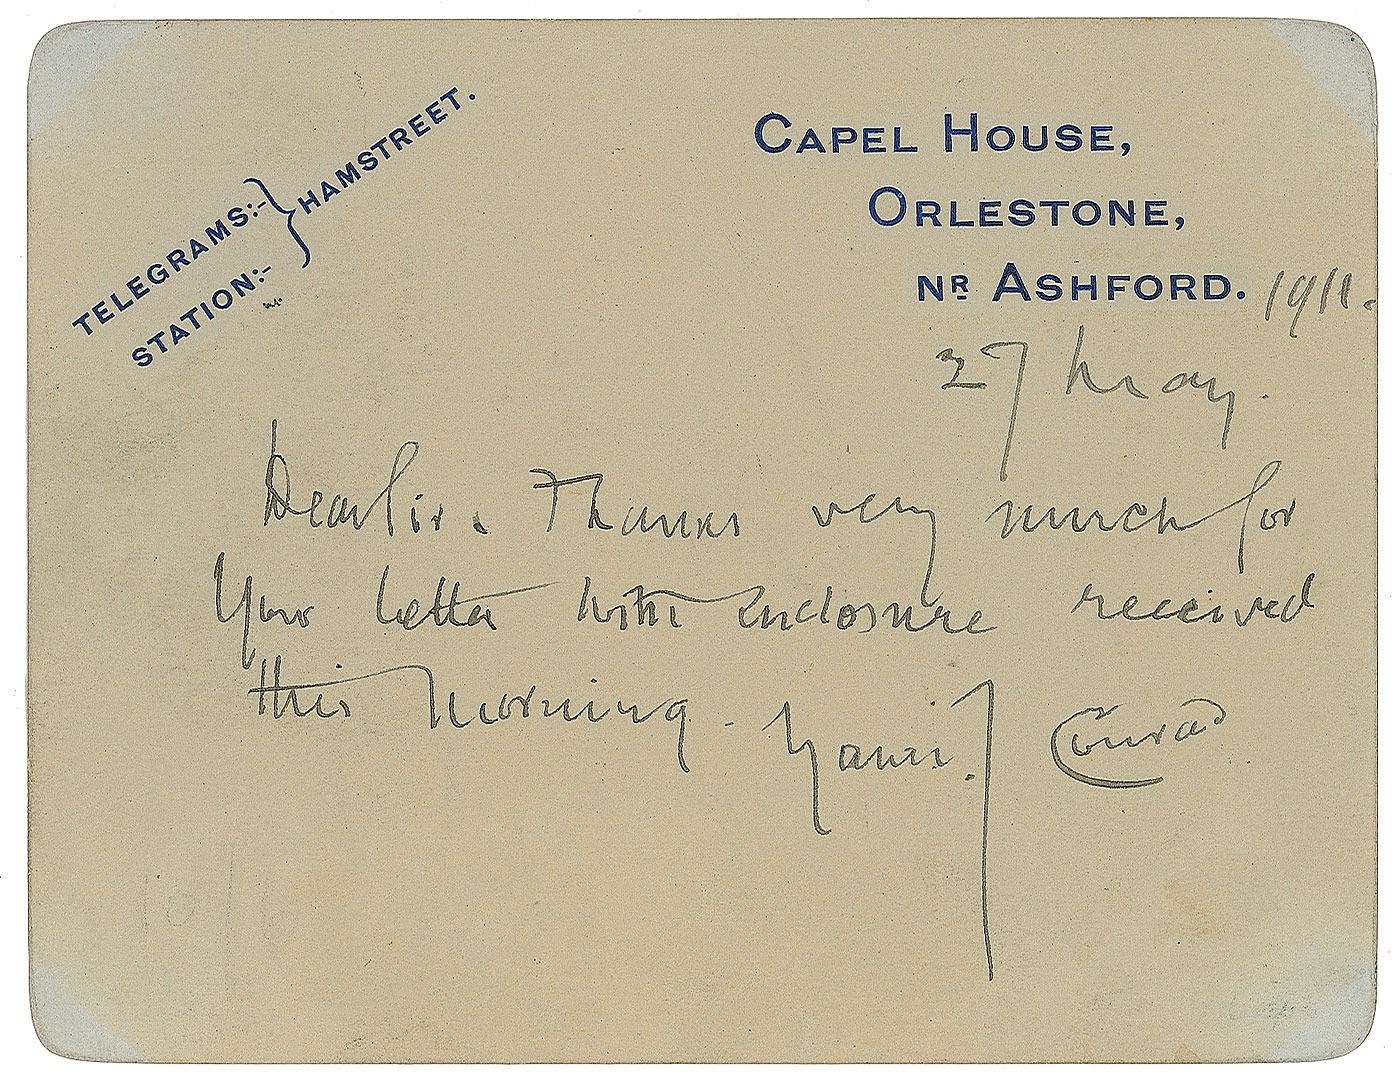 TELEGRAMS:-
STATION:-
HAMSTREET.
CAPEL HOUSE,
ORLESTONE,
NR ASHFORD.
1911.
27 May.
Dear Sir. Thanks very much for
Your letter with enclosure received
this morning. Yours J. Conrad